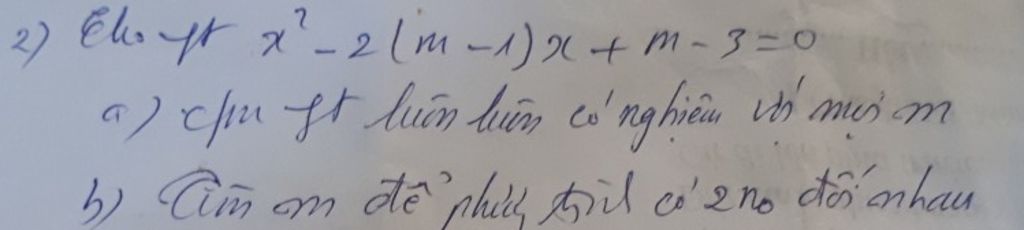 2) Cho pt x² - 2(m - 1)x + m - 3 = 0
a) c/m pt luôn luôn có nghiệm với mọi m
b) Tìm m để phương trình có 2 no đối nhau